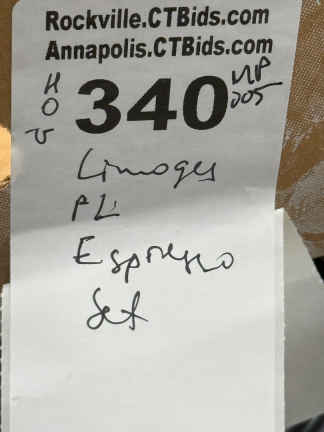 Rockville.CTBids.com
Annapolis.CTBids.com
340
Limoges
PL
Espresso
Set